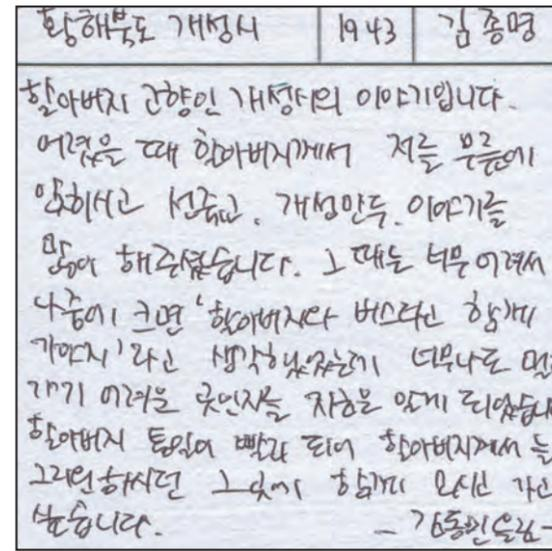 황해북도 개성시 1943 김종명
할아버지 고향인 개성시의 이야기입니다.
어렸을 때 할아버지께서 저를 무릎에
앉히시고 선죽교, 개성만두, 이야기를
많이 해주셨습니다. 그 때는 너무 어려서
나중에 크면 '할아버지와 버스타고 함께
가야지'라고 생각했었는데 너무나도
가기 어려운 곳인지를 차츰 알게 되었습니
할아버지 통일이 빨리 되어 할아버지께서
그리워하시던 그곳에 함께 모시고 가고
싶습니다. - 김동민 올림 -